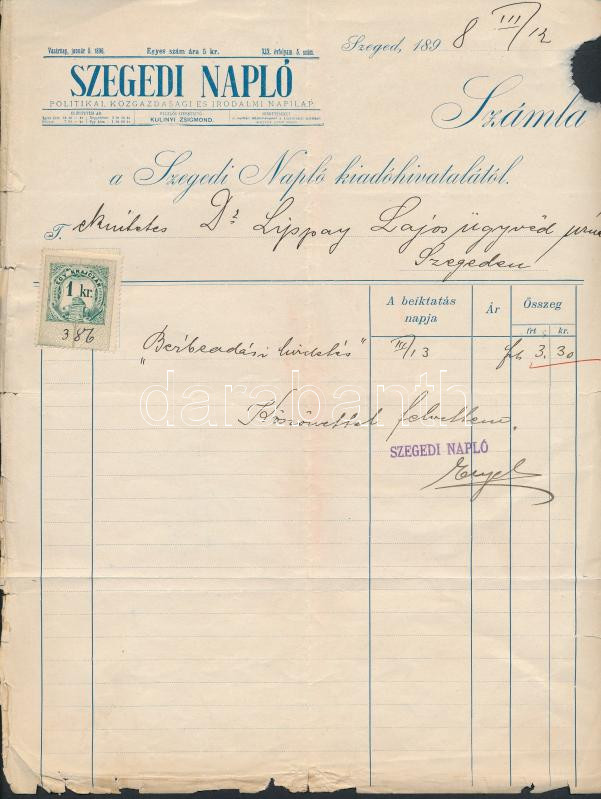 Vasárnap, január 5. 1896. Egyes szám ára 5 kr. XIX. évfolyam 5. szám.
SZEGEDI NAPLÓ
POLITIKAI, KÖZGAZDASÁGI ÉS IRODALMI NAPILAP.
ELŐFIZETÉSI ÁR: FELELŐS SZERKESZTŐ: HIRDETÉSEKET
KULINYI ZSIGMOND.
Szeged, 1898 III/12
Számla
a Szegedi Napló kiadóhivatalától.
T. ekintetes Dr Lippay Lajos ügyvéd
Szegeden
EGY KRAJCZÁR
1 kr.
386
A beiktatás napja Ár Összeg
frt kr.
„Bérbeadási hirdetés" III/13 frt 3. 30
Köszönettel felvettem.
SZEGEDI NAPLÓ
darabanth